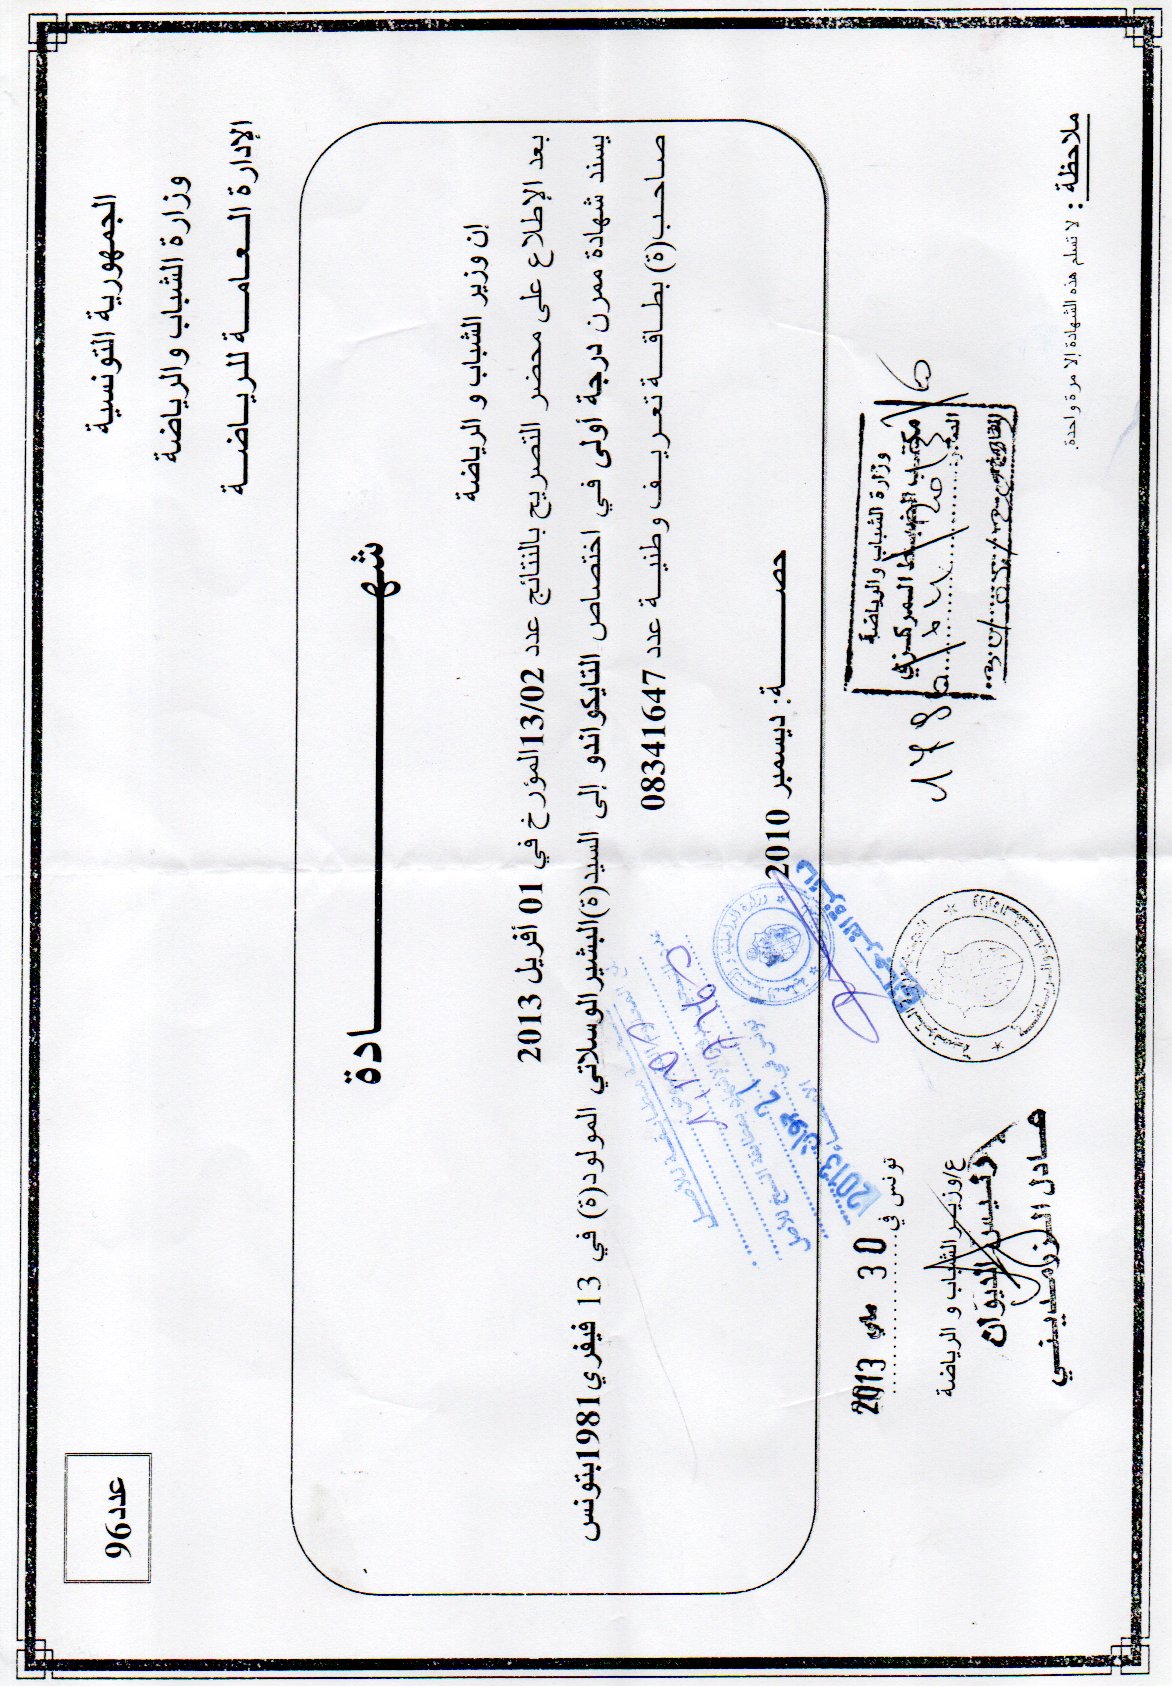 الجمهورية التونسية
وزارة الشباب والرياضة
الإدارة العامة للرياضة
عدد96
شهادة
إن وزير الشباب و الرياضة
بعد الإطلاع على محضر التصريح بالنتائج عدد 13/02المؤرخ في 01 أفريل 2013
يسند شهادة ممرن درجة أولى في اختصاص التايكواندو إلى السيد(ة)البشير الوسلاتي المولود(ة) في 13 فيفري1981بتونس
صاحب(ة) بطاقة تعريف وطنية عدد 08341647
حصة: ديسمبر 2010
تونس في 30 ماي 2013
ع/وزير الشباب و الرياضة
رئيس الديوان
عادل الزرمديني
وزارة الشباب والرياضة
مكتب الضبط المركزي
21 جوان 2013
ملاحظة : لا تسلم هذه الشهادة إلا مرة واحدة.